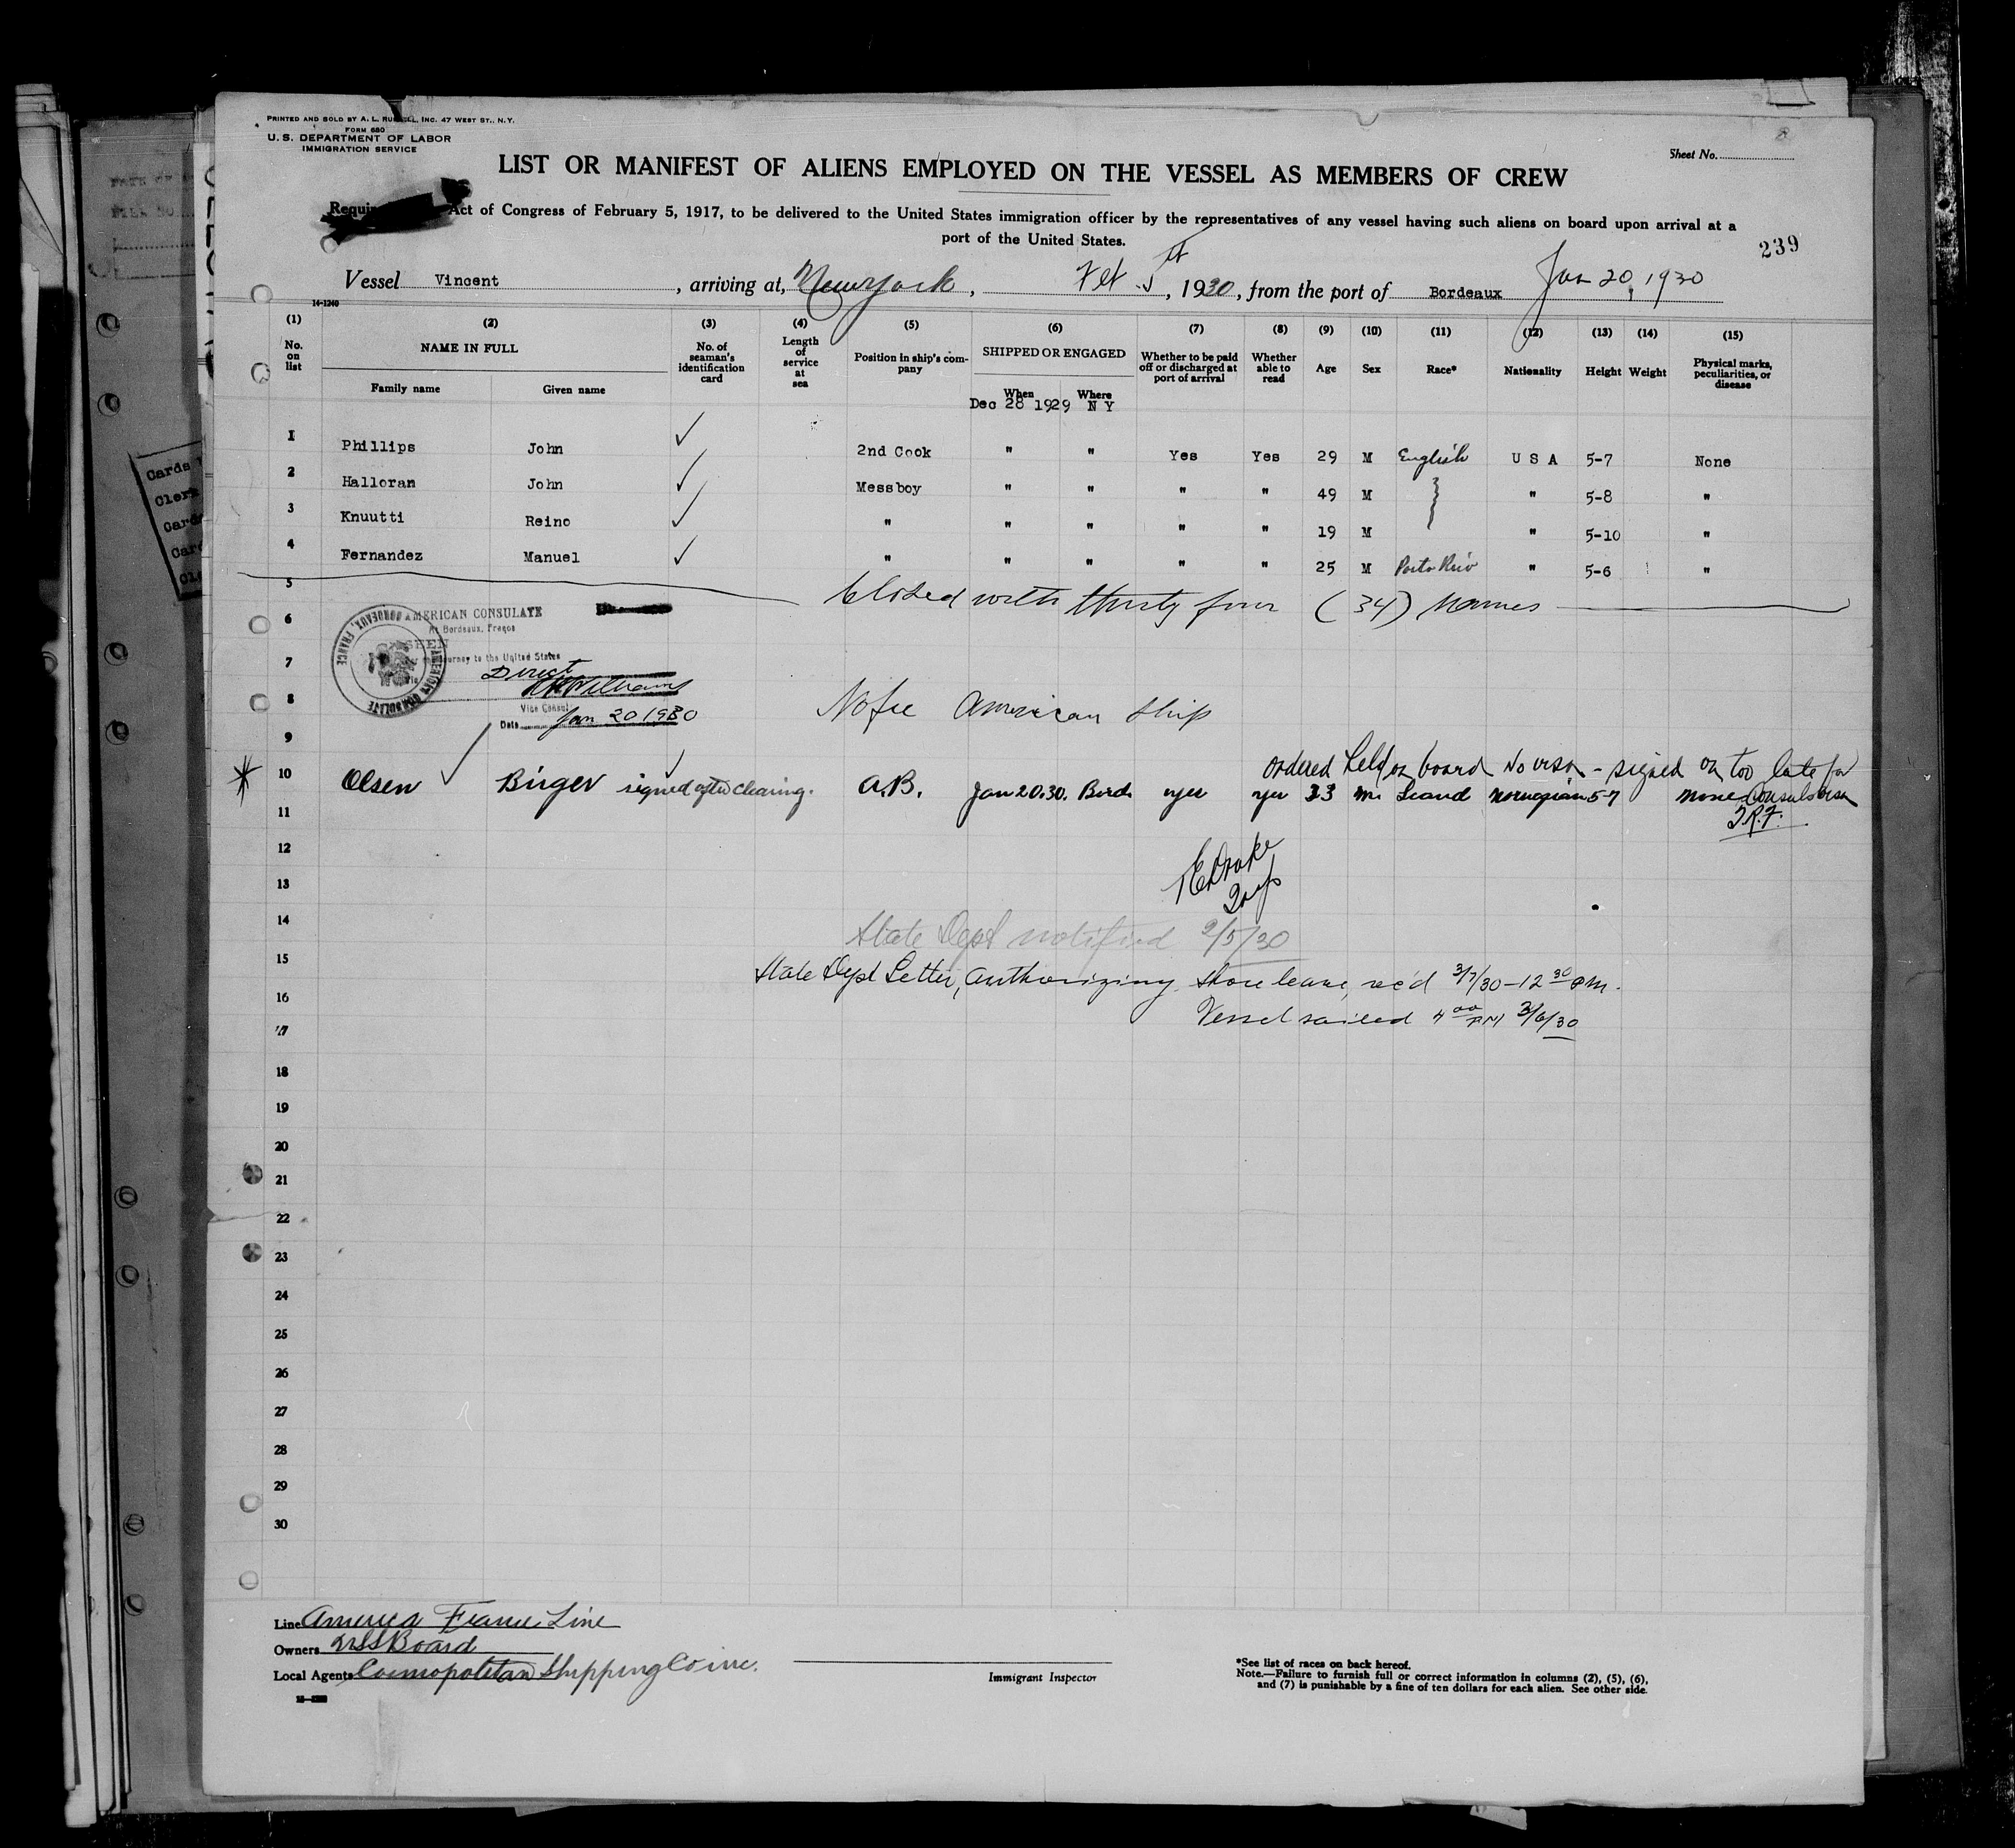 PRINTED AND SOLD BY A. L. RUSSELL, INC. 47 WEST ST., N.Y.
FORM 680
U. S. DEPARTMENT OF LABOR
IMMIGRATION SERVICE
Sheet No.
LIST OR MANIFEST OF ALIENS EMPLOYED ON THE VESSEL AS MEMBERS OF CREW
Act of Congress of February 5, 1917, to be delivered to the United States immigration officer by the representatives of any vessel having such aliens on board upon arrival at a
port of the United States.
239
Vessel Vincent, arriving at, New York, Feb 5th, 1930, from the port of Bordeaux Jan 20, 1930
14-1240
(1) (2) (3) (4) (5) (6) (7) (8) (9) (10) (11) (12) (13) (14) (15)
No. on list NAME IN FULL Family name Given name No. of seaman's identification card Length of service at sea Position in ship's company SHIPPED OR ENGAGED When Where Whether to be paid off or discharged at port of arrival Whether able to read Age Sex Race* Nationality Height Weight Physical marks, peculiarities, or disease
Dec 28 1929 N Y
1 Phillips John ✓ 2nd Cook " " Yes Yes 29 M English U S A 5-7 None
2 Halloran John ✓ Messboy " " " " 49 M " 5-8 "
3 Knuutti Reino ✓ " " " " " 19 M " 5-10 "
4 Fernandez Manuel ✓ " " " " " 25 M Porto Rico " 5-6 "
5 Closed with thirty four (34) names
6 AMERICAN CONSULATE
At Bordeaux, France
SEEN
7 journey to the United States
Direct
8 Vice Consul
Date Jan. 20 1930
AMERICAN CONSULATE BORDEAUX, FRANCE
No fee American Ship
9
ordered held on board No visa - signed on too late for
10 Olsen ✓ Birger signed after clearing. A.B. Jan 20.30. Bord. yes yes 33 M Scand Norwegian 5-7 None Consuls visa
11
12
13
14 State Dept notified 2/5/30
15 State Dept Letter, authorizing shore leave, rec'd 3/7/30 - 12 30 PM.
16 Vessel sailed 4 00 PM 3/6/30
17
18
19
20
21
22
23
24
25
26
27
28
29
30
Line America France Line
Owners USS Board
Local Agents Cosmopolitan Shipping Co inc.
Immigrant Inspector
*See list of races on back hereof.
Note.—Failure to furnish full or correct information in columns (2), (5), (6),
and (7) is punishable by a fine of ten dollars for each alien. See other side.